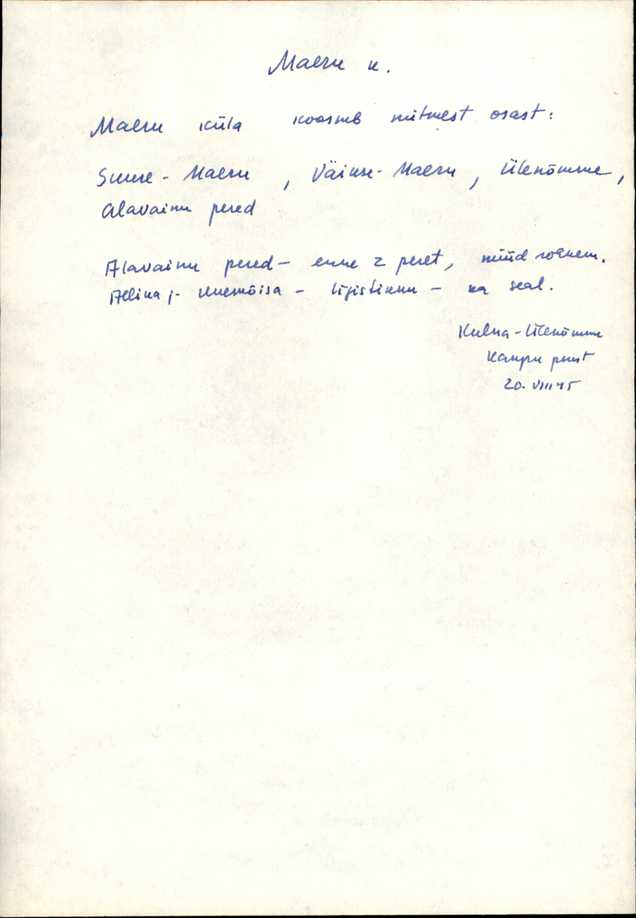 Maeru k.
Maeru küla koosneb mitmest osast:
Suure-Maeru, Väikse-Maeru, Ülenõmme,
Alavainu pered
Alavainu pered - enne 2 peret, nüüd rohkem.
- ka seal.
-Ülenõmme
perest
20. VIII 45